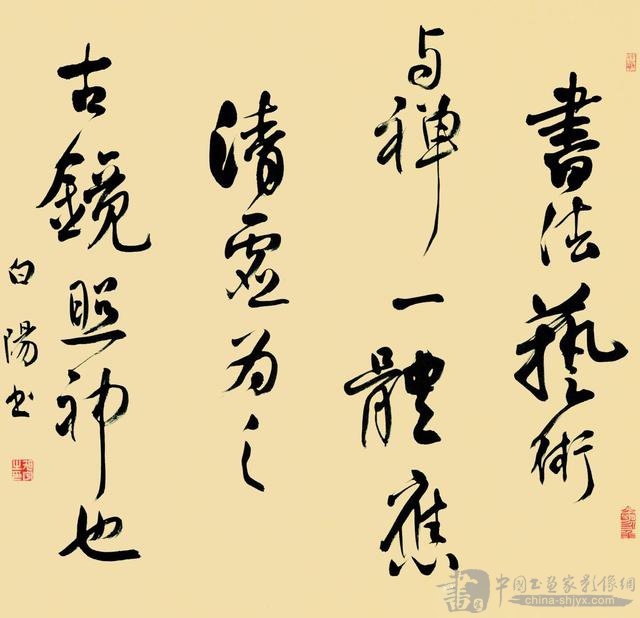 書法藝術
与禅一體應
清虛为之
古鏡照神也
白陽书
中國书画家影像網
china-shjyx.com